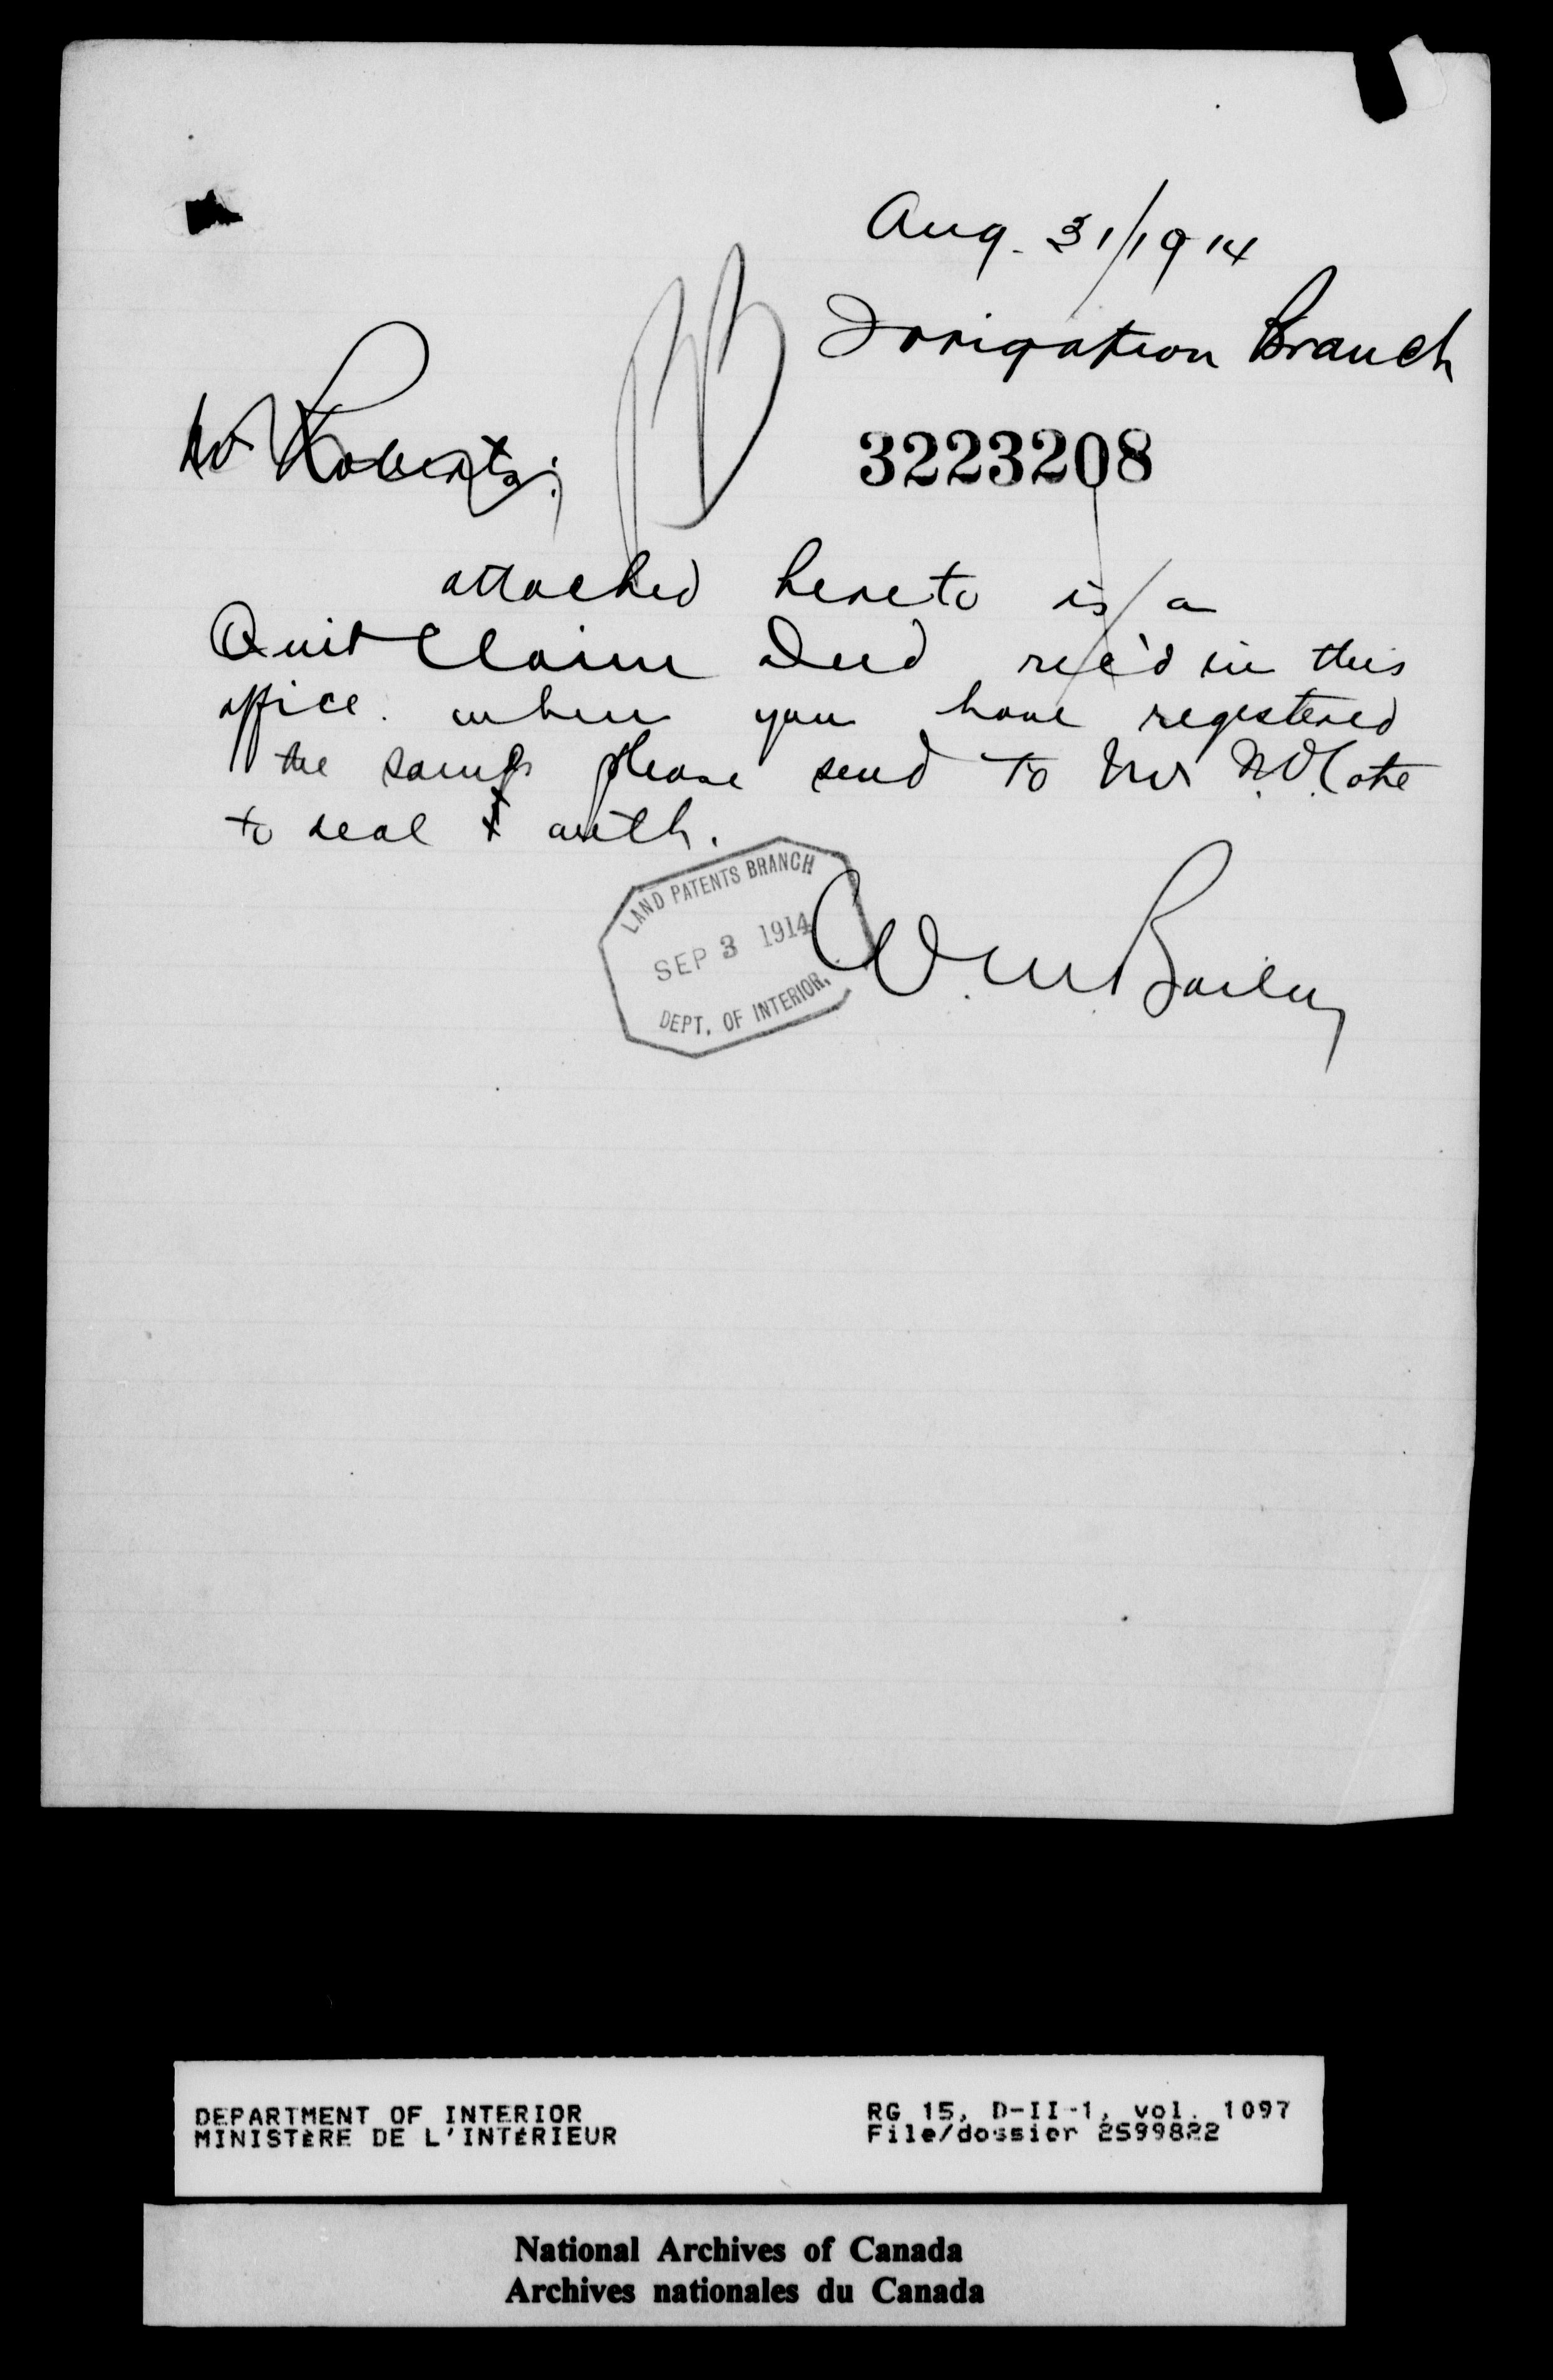 Aug. 31/1914
Irrigation Branch
Mr Roberts;
3223208
attached hereto is a
Quit Claim Deed rec'd in this
office. when you have registered
the same please send to Mr N.O. Cote
to seal & auth.
W.M. Bailey
LAND PATENTS BRANCH
SEP 3 1914
DEPT. OF INTERIOR.
DEPARTMENT OF INTERIOR
MINISTÈRE DE L'INTÉRIEUR
RG 15, D-II-1, vol. 1097
File/dossier 2599822
National Archives of Canada
Archives nationales du Canada